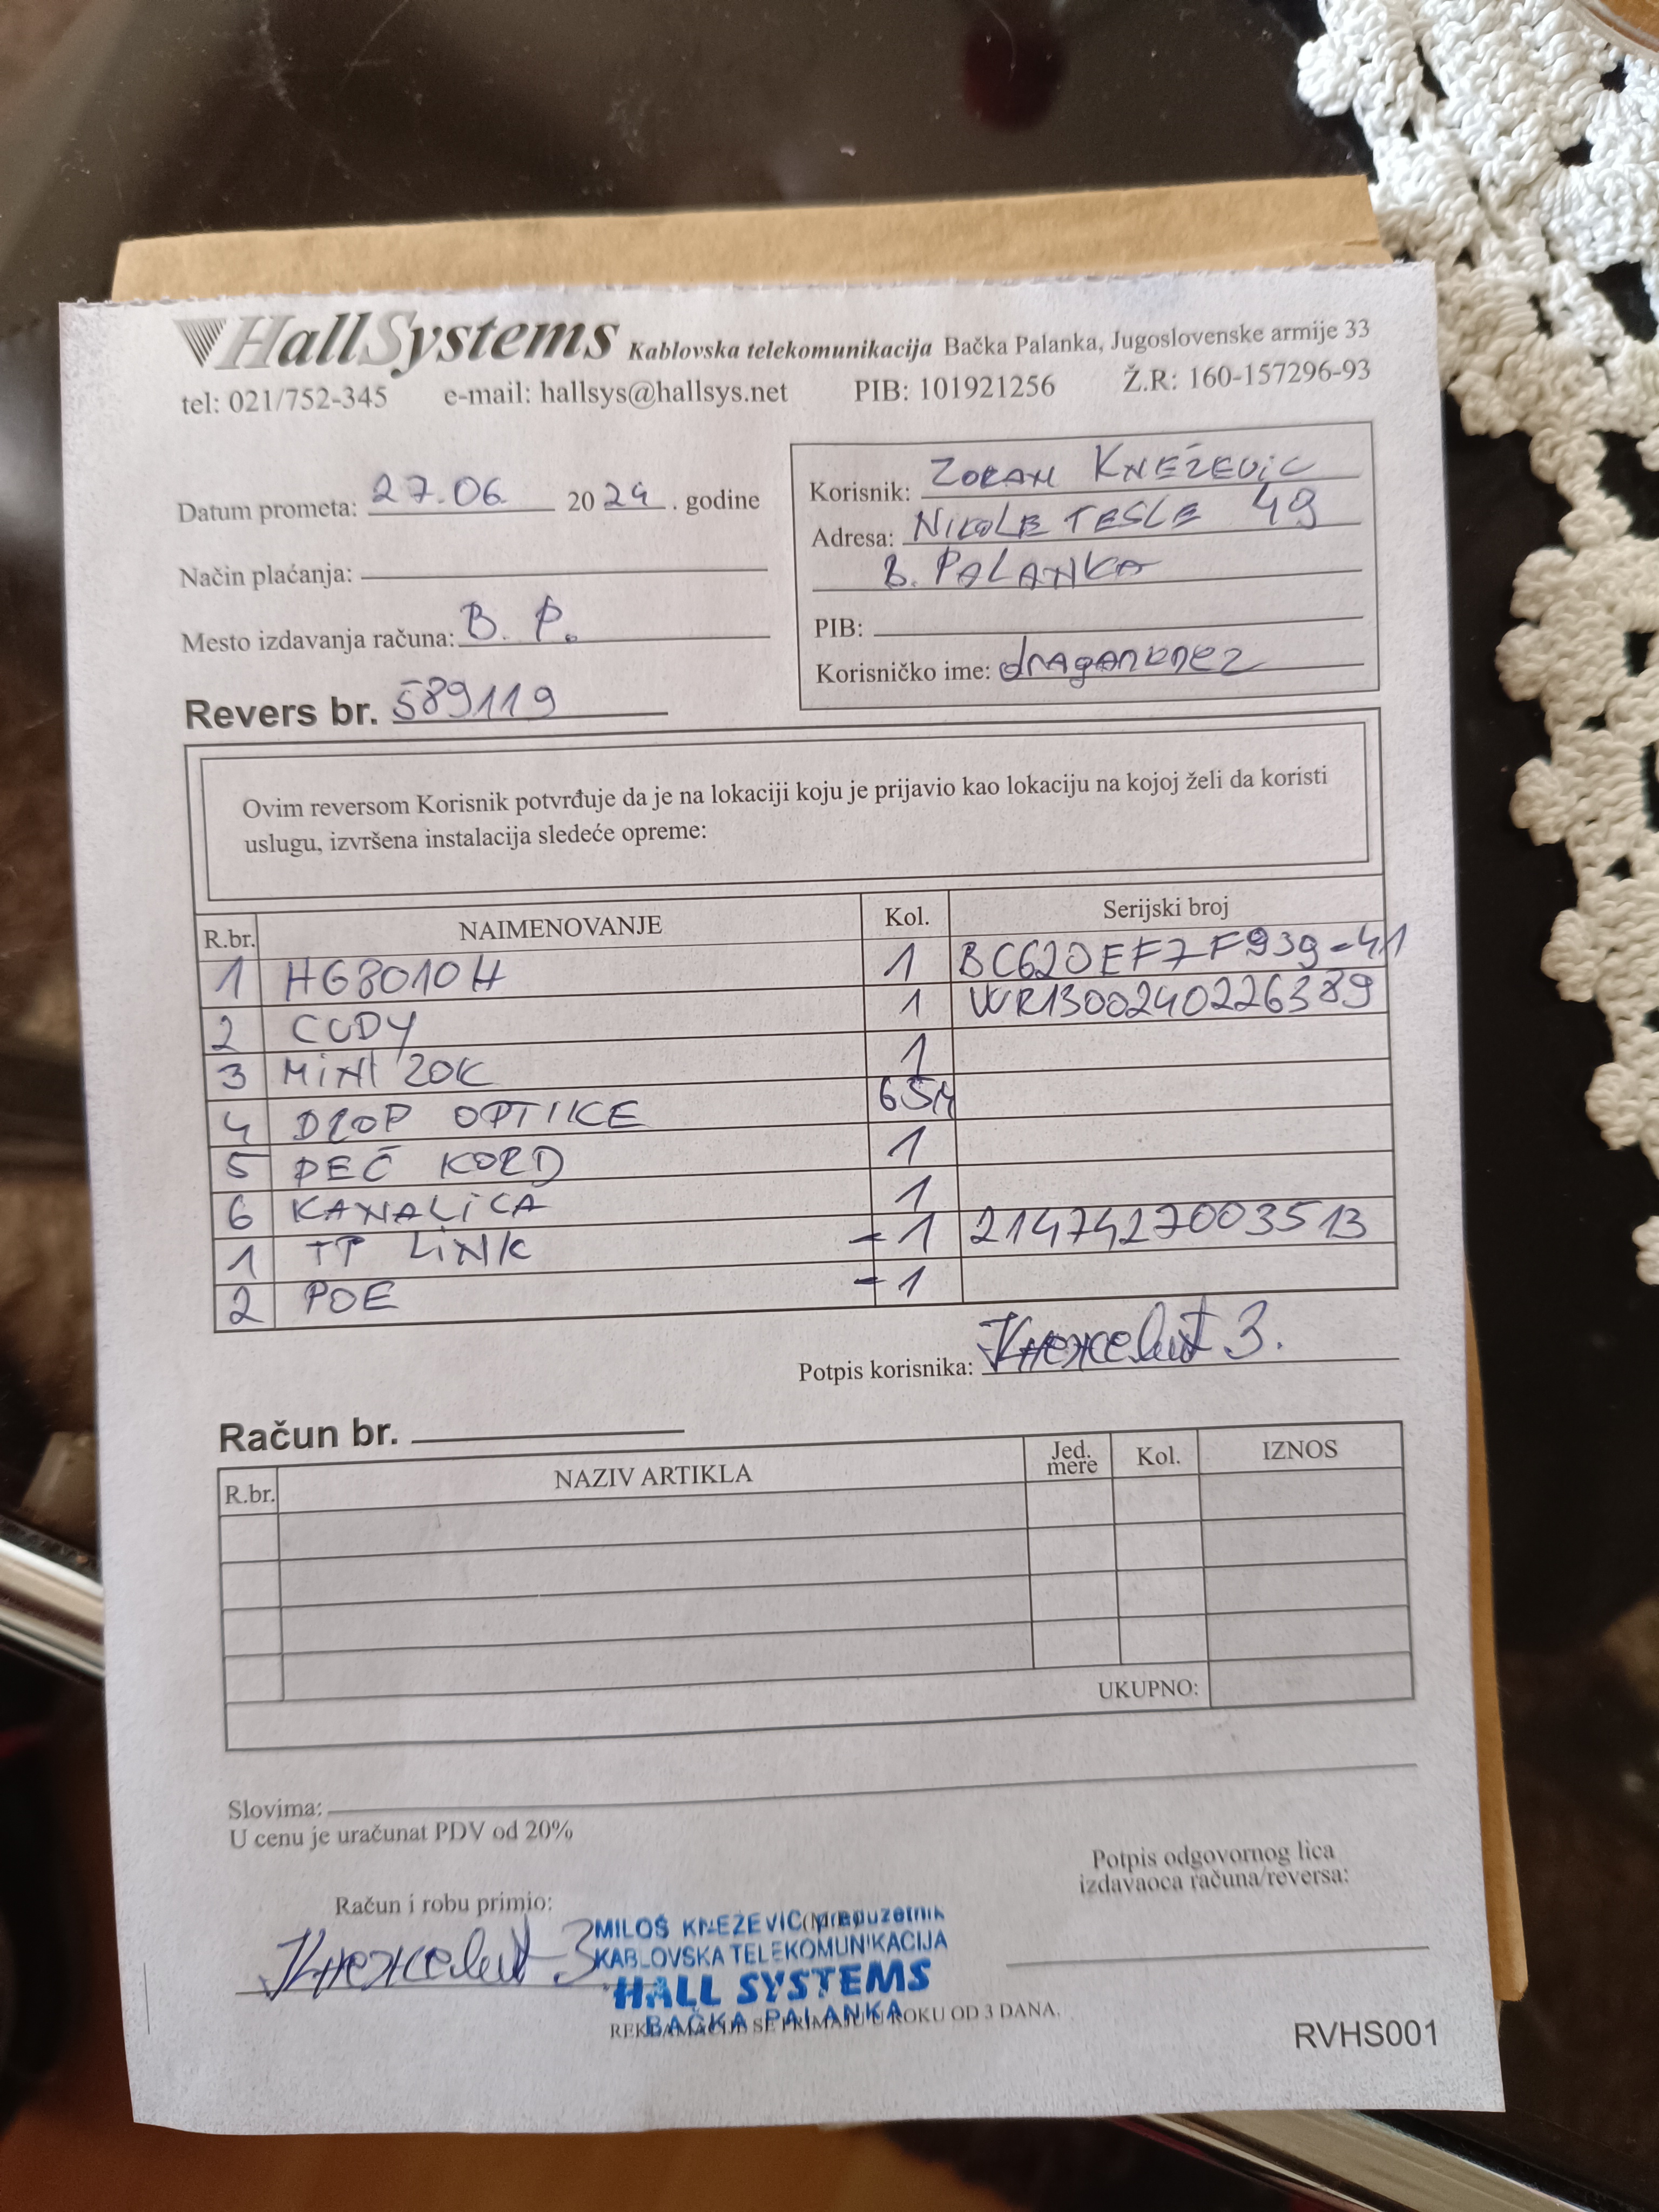 HallSystems Kablovska telekomunikacija Bačka Palanka, Jugoslovenske armije 33
tel: 021/752-345 e-mail: hallsys@hallsys.net PIB: 101921256 Ž.R: 160-157296-93
Datum prometa: 27.06. 2024. godine
Način plaćanja:
Mesto izdavanja računa: B. P.
Revers br. 589119
Korisnik: ZORAN KNEŽEVIC
Adresa: NIKOLE TESLE 49
B. PALANKA
PIB:
Korisničko ime: draganknez
Ovim reversom Korisnik potvrđuje da je na lokaciji koju je prijavio kao lokaciju na kojoj želi da koristi
uslugu, izvršena instalacija sledeće opreme:
R.br. NAIMENOVANJE Kol. Serijski broj
1 HG8010H 1 BC620EF7F939-41
2 CUDY 1 WR1300240226389
3 MINI ZOK 1
4 DROP OPTIKE 65M
5 PEČ KORD 1
6 KANALICA 1
1 TP LINK -1 2147427003513
2 POE -1
Potpis korisnika: Кнежевић З.
Račun br.
R.br. NAZIV ARTIKLA Jed. mere Kol. IZNOS
UKUPNO:
Slovima:
U cenu je uračunat PDV od 20%
Račun i robu primio:
Кнежевић З
Potpis odgovornog lica
izdavaoca računa/reversa:
MILOŠ KNEŽEVIĆ preduzetnik
KABLOVSKA TELEKOMUNIKACIJA
HALL SYSTEMS
BAČKA PALANKA
REKLAMACIJE SE PRIMAJU U ROKU OD 3 DANA.
RVHS001